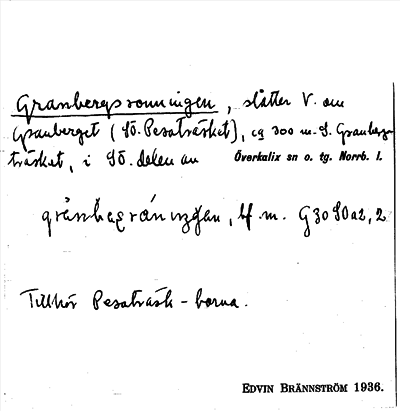 Granbergsronningen, slåtter V. om
Granberget (SÖ. Pesaträsket), ca 300 m. S. Granbergs-
träsket, i SÖ. delen av Överkalix sn o. tg. Norrb. l.
gránbærǥ, bf. m. G30 S0a2, 2
Tillhör Pesaträsk-borna.
EDVIN BRÄNNSTRÖM 1936.